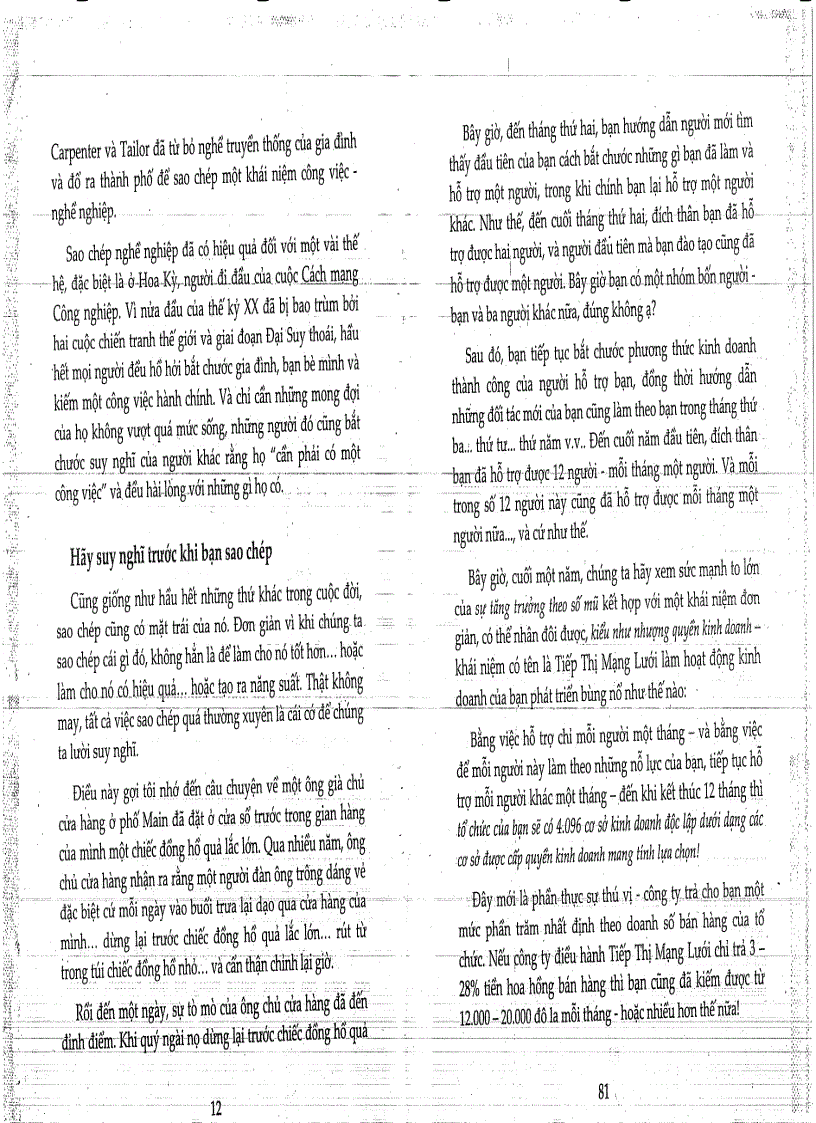 Carpenter và Tailor đã từ bỏ nghề truyền thống của gia đình
và đổ ra thành phố để sao chép một khái niệm công việc -
nghề nghiệp.
Sao chép nghề nghiệp đã có hiệu quả đối với một vài thế
hệ, đặc biệt là ở Hoa Kỳ, người đi đầu của cuộc Cách mạng
Công nghiệp. Vì nửa đầu của thế kỷ XX đã bị bao trùm bởi
hai cuộc chiến tranh thế giới và giai đoạn Đại Suy thoái, hầu
hết mọi người đều hồ hởi bắt chước gia đình, bạn bè mình và
kiếm một công việc hành chính. Và chỉ cần những mong đợi
của họ không vượt quá mức sống, những người đó cũng bắt
chước suy nghĩ của người khác rằng họ “cần phải có một
công việc” và đều hài lòng với những gì họ có.
Hãy suy nghĩ trước khi bạn sao chép
Cũng giống như hầu hết những thứ khác trong cuộc đời,
sao chép cũng có mặt trái của nó. Đơn giản vì khi chúng ta
sao chép cái gì đó, không hẳn là để làm cho nó tốt hơn... hoặc
làm cho nó có hiệu quả... hoặc tạo ra năng suất. Thật không
may, tất cả việc sao chép quá thường xuyên là cái cớ để chúng
ta lười suy nghĩ.
Điều này gợi tôi nhớ đến câu chuyện về một ông già chủ
cửa hàng ở phố Main đã đặt ở cửa sổ trước trong gian hàng
của mình một chiếc đồng hồ quả lắc lớn. Qua nhiều năm, ông
chủ cửa hàng nhận ra rằng một người đàn ông trông dáng vẻ
đặc biệt cứ mỗi ngày vào buổi trưa lại dạo qua cửa hàng của
mình... dừng lại trước chiếc đồng hồ quả lắc lớn... rút từ
trong túi chiếc đồng hồ nhỏ... và cẩn thận chỉnh lại giờ.
Rồi đến một ngày, sự tò mò của ông chủ cửa hàng đã đến
đỉnh điểm. Khi quý ngài nọ dừng lại trước chiếc đồng hồ quả
12
Bây giờ, đến tháng thứ hai, bạn hướng dẫn người mới tìm
thấy đầu tiên của bạn cách bắt chước những gì bạn đã làm và
hỗ trợ một người, trong khi chính bạn lại hỗ trợ một người
khác. Như thế, đến cuối tháng thứ hai, đích thân bạn đã hỗ
trợ được hai người, và người đầu tiên mà bạn đào tạo cũng đã
hỗ trợ được một người. Bây giờ bạn có một nhóm bốn người -
bạn và ba người khác nữa, đúng không ạ?
Sau đó, bạn tiếp tục bắt chước phương thức kinh doanh
thành công của người hỗ trợ bạn, đồng thời hướng dẫn
những đối tác mới của bạn cũng làm theo bạn trong tháng thứ
ba... thứ tư... thứ năm v.v.. Đến cuối năm đầu tiên, đích thân
bạn đã hỗ trợ được 12 người - mỗi tháng một người. Và mỗi
trong số 12 người này cũng đã hỗ trợ được mỗi tháng một
người nữa..., và cứ như thế.
Bây giờ, cuối một năm, chúng ta hãy xem sức mạnh to lớn
của sự tăng trưởng theo số mũ kết hợp với một khái niệm đơn
giản, có thể nhân đôi được, kiểu như nhượng quyền kinh doanh –
khái niệm có tên là Tiếp Thị Mạng Lưới làm hoạt động kinh
doanh của bạn phát triển bùng nổ như thế nào:
Bằng việc hỗ trợ chỉ mỗi người một tháng – và bằng việc
để mỗi người này làm theo những nỗ lực của bạn, tiếp tục hỗ
trợ mỗi người khác một tháng – đến khi kết thúc 12 tháng thì
tổ chức của bạn sẽ có 4.096 cơ sở kinh doanh độc lập dưới dạng các
cơ sở được cấp quyền kinh doanh mang tính lựa chọn!
Đây mới là phần thực sự thú vị - công ty trả cho bạn một
mức phần trăm nhất định theo doanh số bán hàng của tổ
chức. Nếu công ty điều hành Tiếp Thị Mạng Lưới chi trả 3 –
28% tiền hoa hồng bán hàng thì bạn cũng đã kiếm được từ
12.000 – 20.000 đô la mỗi tháng - hoặc nhiều hơn thế nữa!
81